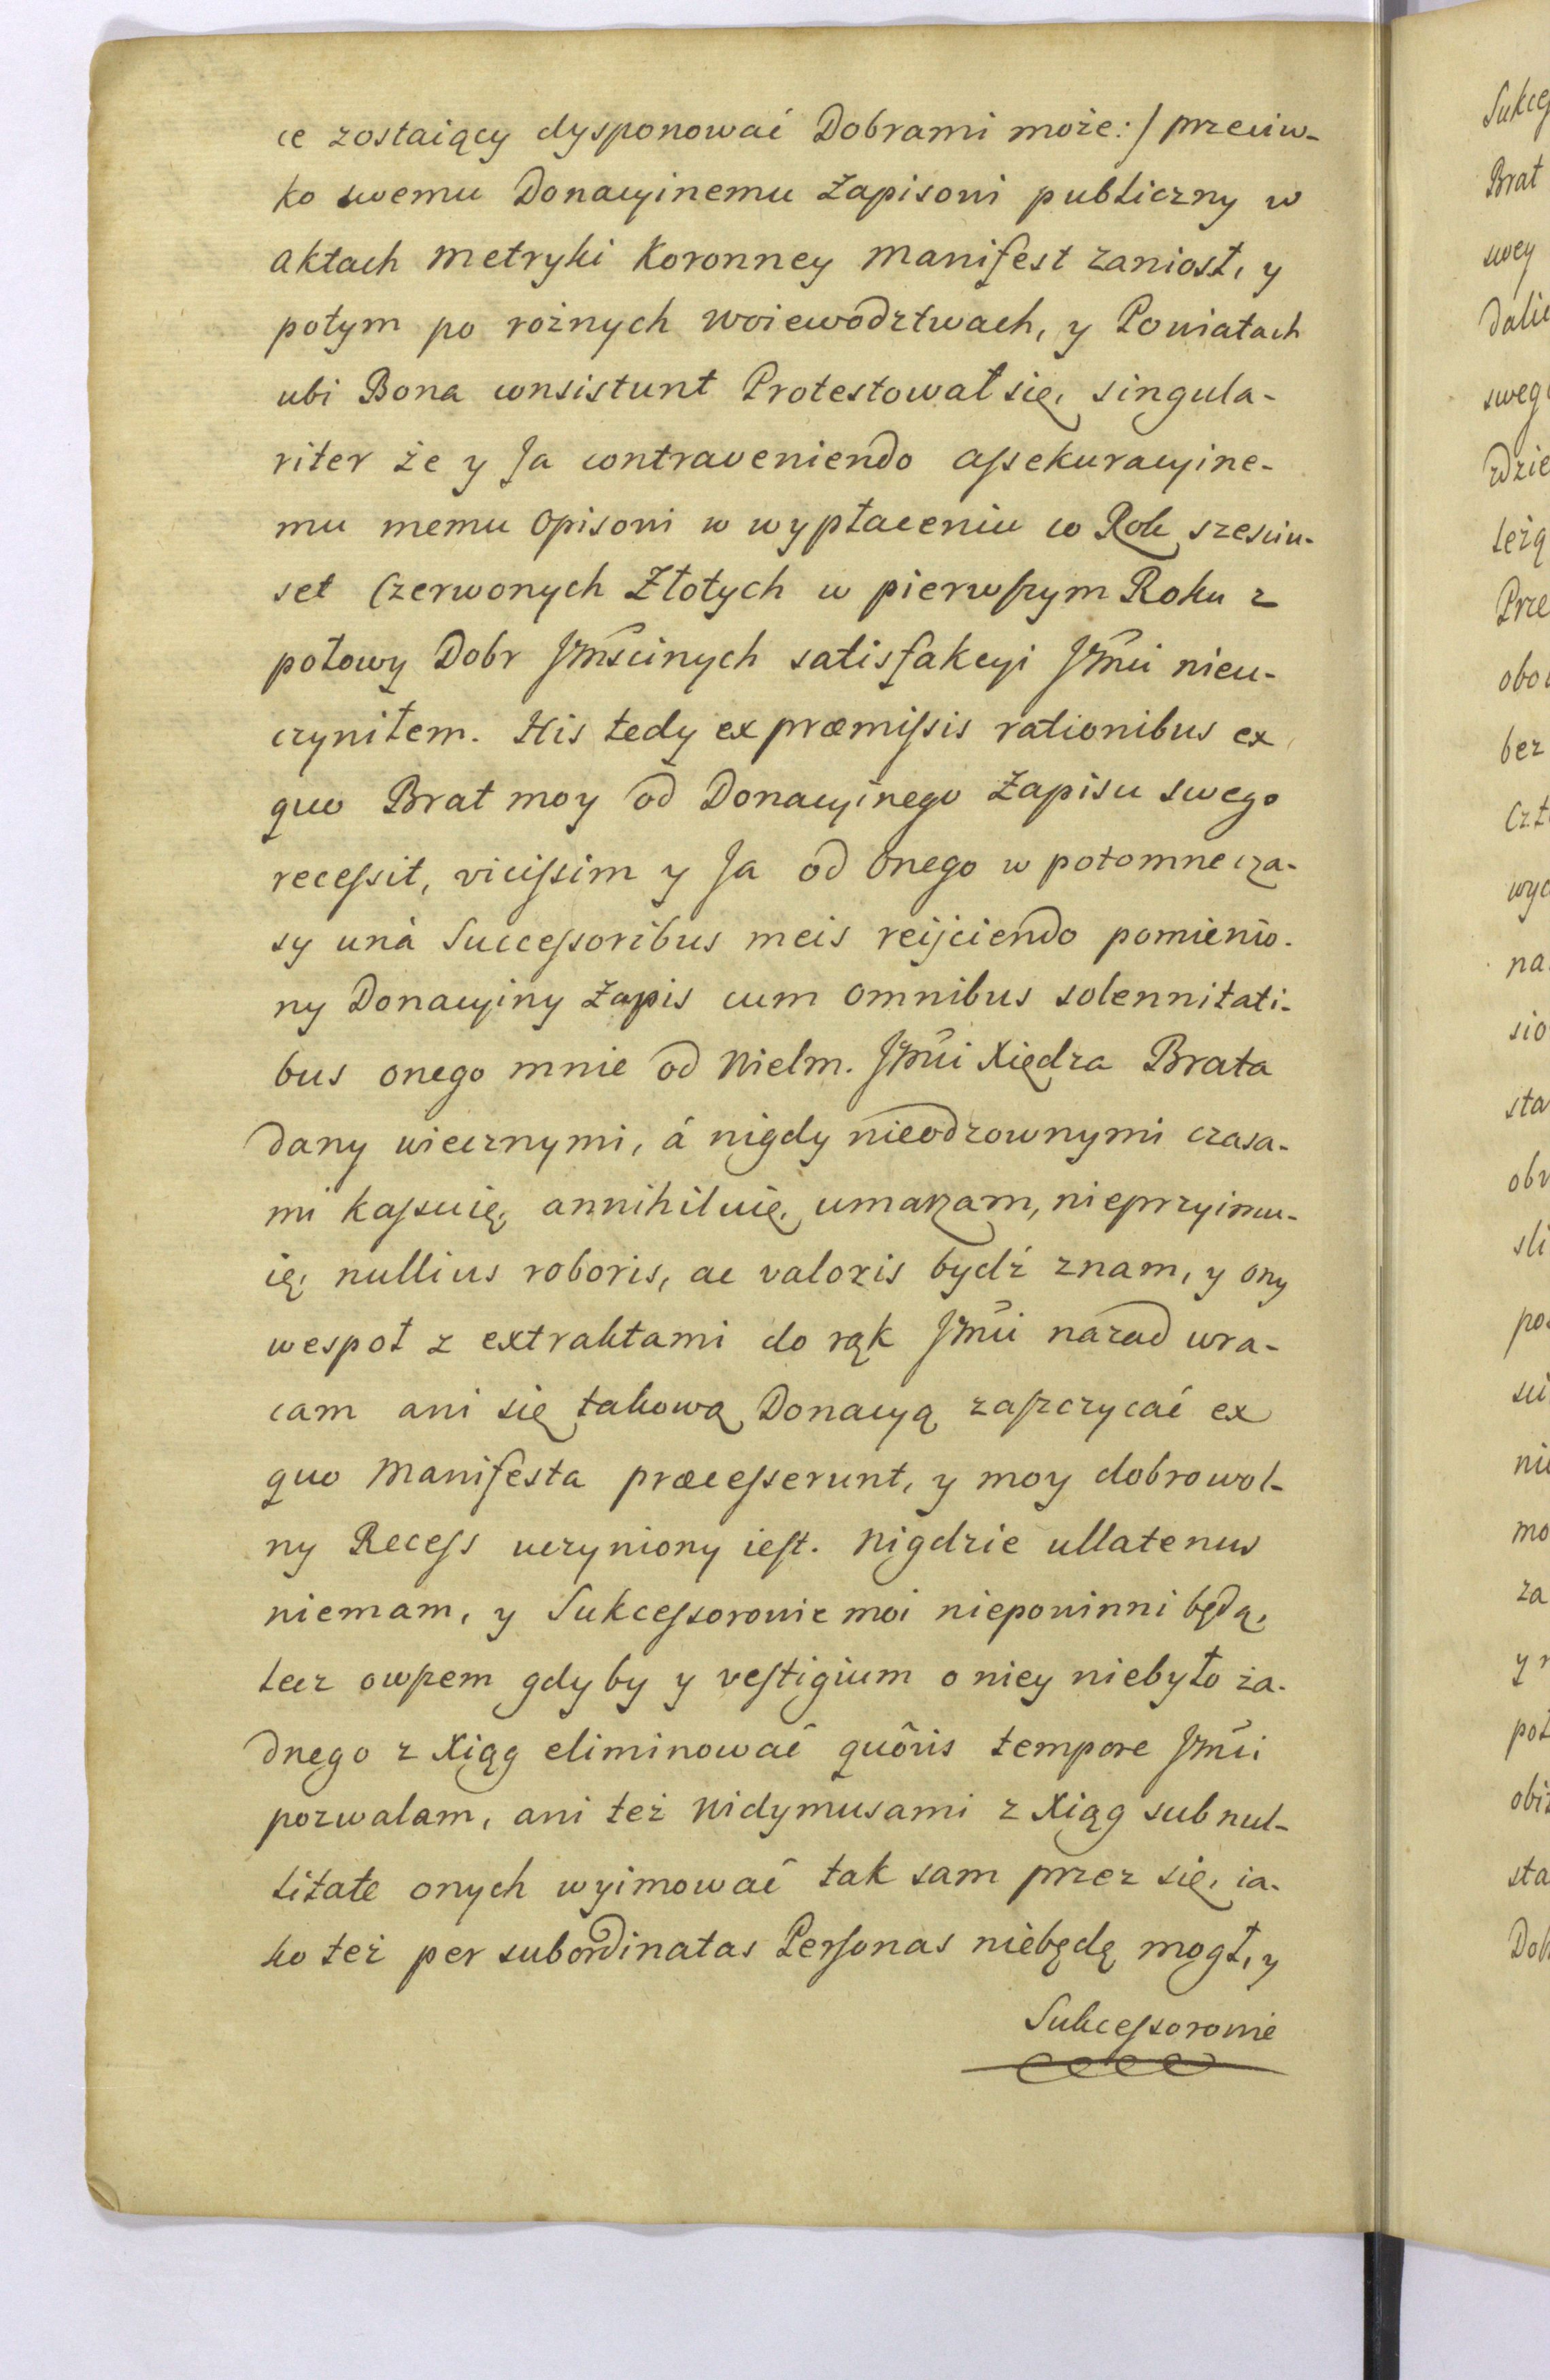 ce zostaiący dysponować Dobrami może:/ przeciw-
ko swemu Donacyinemu Zapisowi publiczny w
Aktach Metryki Koronney Manifest zaniosł, y
potym po rożnych Woiewodztwach, y Powiatach
ubi Bona consistunt Protestował się, singula-
riter że y Ja contraveniendo assekuracyine-
mu memu Opisowi w wypłaceniu co Rok sześciu-
set Czerwonych Złotych w pierwszym Roku z
połowy Dobr Jmścinych satisfakcyi Jmci nieu-
czyniłem. His tedy ex præmissis rationibus ex
quo Brat moy od Donacyinego Zapisu swego
recessit, vicissim y Ja od Onego w potomne cza-
sy unà Successoribus meis reijciendo pomienio-
ny Donacyiny Zapis cum omnibus solennitati-
bus onego mnie od Wielm. Jmci Xiędza Brata
dany wiecznymi, á nigdy nieodzownymi czasa-
mi kassuię, annihiluię, umarzam, nieprzyimu-
ię, nullius roboris, ac valoris bydź znam, y ony
wespoł z extraktami do rąk Jmci nazad wra-
cam ani się takową Donacyą zaszczycać ex
quo Manifesta præcesserunt, y moy dobrowol-
ny Recess uczyniony iest. Nigdzie ullatenus
niemam, y Sukcessorowie moi niepowinni będą,
lecz owszem gdyby y vestigium o niey niebyło ża-
dnego z Xiąg eliminować quôvis tempore Jmci
pozwalam, ani też Widymusami z Xiąg sub nul-
litate onych wyimować tak sam przez się, ia-
ko też per subordinatas Personas niebędę mogł, y
Sukcessorowie
Sukces
Brat
swey
Dali
sweg
rdzie
leżą
Prze
obo
bez
Czł
wyc
na
sio
sta
obr
sli
pos
su
nie
mo
za
y n
poł
obi
sta
Dob